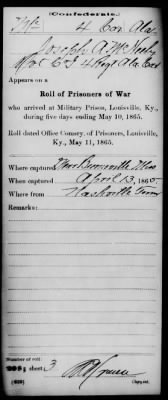 (Confederate.)
4 Cav. Ala.
Joseph A.
Appears on a
Roll of Prisoners of War
who arrived at Military Prison, Louisville, Ky.,
during five days ending May 10, 1865.
Roll dated Office Comsry. of Prisoners, Louisville,
Ky., May 11, 1865.
Where captured Miss
When captured April 13, 1865.
Where from Nashville Tenn
Remarks:
Number of roll:
sheet 3
Copyist.